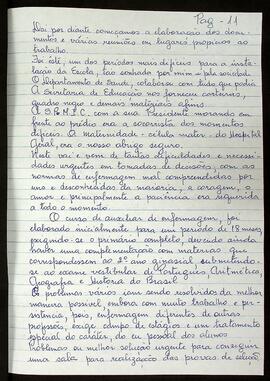 Pag - 11
Daí por diante começamos a elaboração dos docu-
mentos e várias reuniões em lugares propícios ao
trabalho.
Foi êste, um dos períodos mais difíceis para a insta-
lação da Escola, tão sonhada por mim e pela sociedade.
O Departamento de Saúde, colaborou com tudo que podia.
A Secretaria de Educação nos forneceu carteiras,
quadro negro e demais materiais afins.
A com a sua Presidente morando em
frente ao prédio era a socorrista dos momentos
difíceis. A maternidade - célula mater - do Hospital
Geral, era o nosso abrigo seguro.
Neste vai e vem de tantas dificuldades e necessi-
dades urgentes em tomadas de decisões, com as
normas de enfermagem mal compreendidas por
uns e desconhecidas da maioria, a coragem, o
amor e principalmente a paciência era requerida
a todo o momento.
O curso de auxiliar de enfermagem, foi
elaborado inicialmente para um período de 18 meses,
exigindo-se o primário completo, devido ainda
haver uma complementação com matérias que
correspondessem ao 2º ano ginasial submetendo-
se ao exame vestibular de Português, Aritmética,
Geografia e História do Brasil.
Os problemas vários iam sendo resolvidos da melhor
maneira possível embora com muito trabalho e per-
sistência, pois, enfermagem diferente de outras
profissões, exige campo de estágios e um tratamento
especial do caráter, do eu pessoal dos alunos.
a melhor solução urgente para conseguir
uma sala para realização das provas de seleção